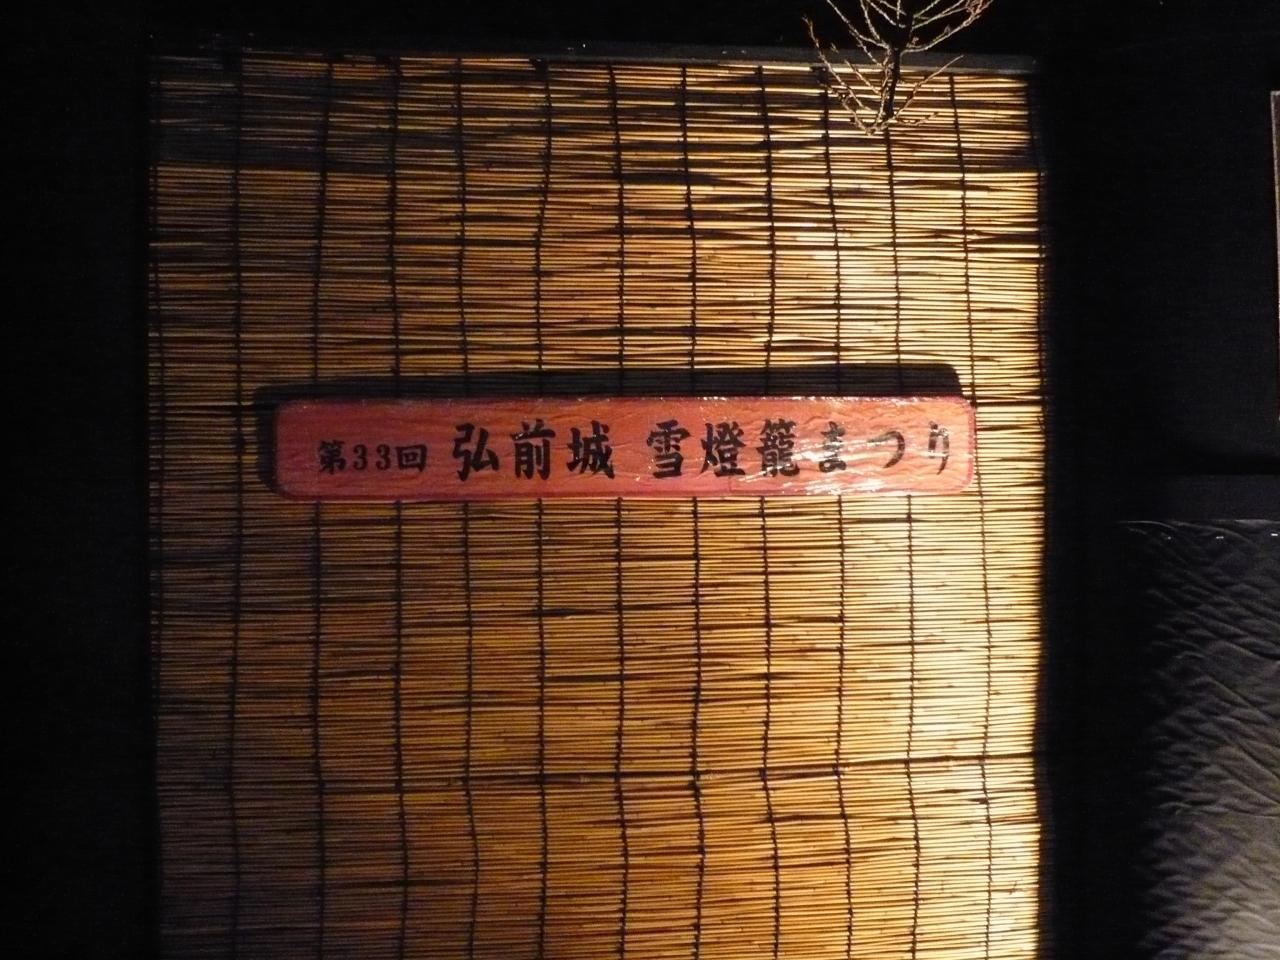 第33回 弘前城 雪燈籠まつり